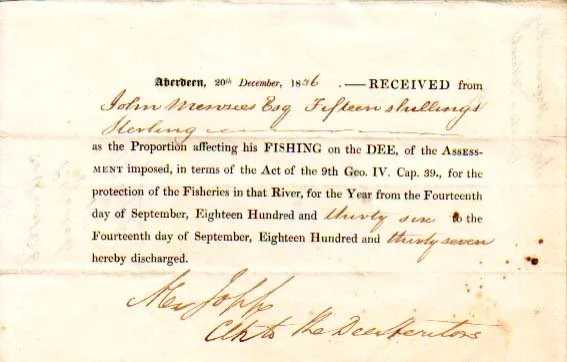 Aberdeen, 20th December, 1836 .—RECEIVED from
John Menzies Esq Fifteen shillings
Sterling
as the Proportion affecting his FISHING on the DEE, of the ASSESS-
MENT imposed, in terms of the Act of the 9th Geo. IV. Cap. 39., for the
protection of the Fisheries in that River, for the Year from the Fourteenth
day of September, Eighteen Hundred and thirty six to the
Fourteenth day of September, Eighteen Hundred and thirty seven
hereby discharged.
Alex Jopp
Clk to the Dee Heritors